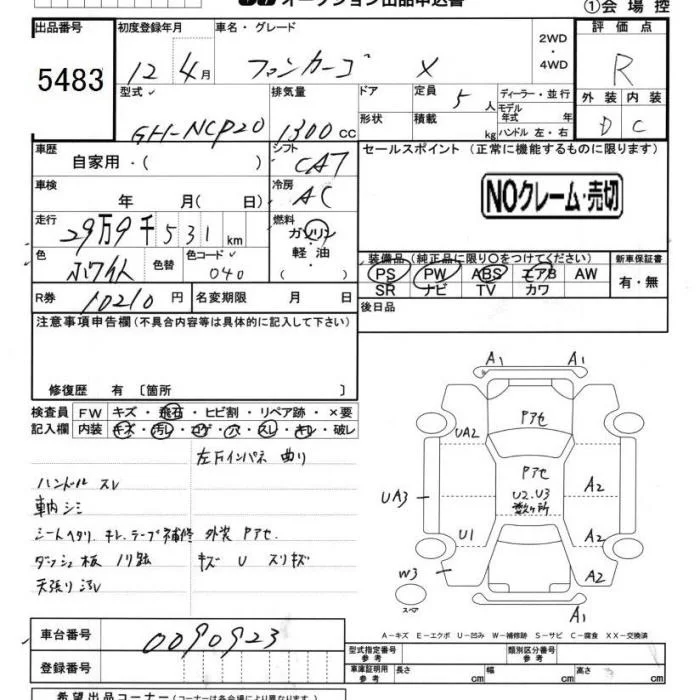 オークション出品申込書
①会場控
出品番号
5483
初度登録年月
12 4月
車名・グレード
ファンカーゴ X
2WD
・
4WD
評価点
R
型式
GH-NCP20
排気量
1300 cc
ドア
定員
5人
ディーラー・並行
モデル年式 年
形状
積載
kg
ハンドル 左・右
外装 内装
D C
車歴
自家用・( )
シフト
CA7
セールスポイント (正常に機能するものに限ります)
NOクレーム・売切
車検
年 月( 日)
冷房
AC
走行
29万9千531km
燃料
ガソリン
軽・油
( )
色
ホワイト
色替
色コード
040
装備品(純正品に限り○をつけてください)
PS PW ABS エアB AW
SR ナビ TV カワ
新車保証書
有・無
R券
10210円
名変期限 月 日
後日品
注意事項申告欄(不具合内容等は具体的に記入して下さい)
修復歴 有 〔箇所 〕
検査員
記入欄
FW キズ・飛石・ヒビ割・リペア跡・×要
内装 キズ・汚レ・コゲ・穴・スレ・キレ・破レ
左Fインパネ 曲り
ハンドル スレ
車内 シミ
シートヘタリ、キレ、テープ補修 外装 Pアセ.
ダッシュ板 ノリ跡 キズ U スリキズ
天張り 汚レ
A1 A1
Pアセ
UA2
Pアセ
U2.U3
数ヶ所
UA3
A2
U1
A2
W3
A2
スペア
A1
A-キズ E-エクボ U-凹み W-補修跡 S-サビ C-腐食 XX-交換済
車台番号
0090923
登録番号
型式指定番号
参考
類別区分番号
参考
車庫証明用
参考
長さ cm 幅 cm 高さ cm
希望出品コーナー(コーナーは各会場により異なります)